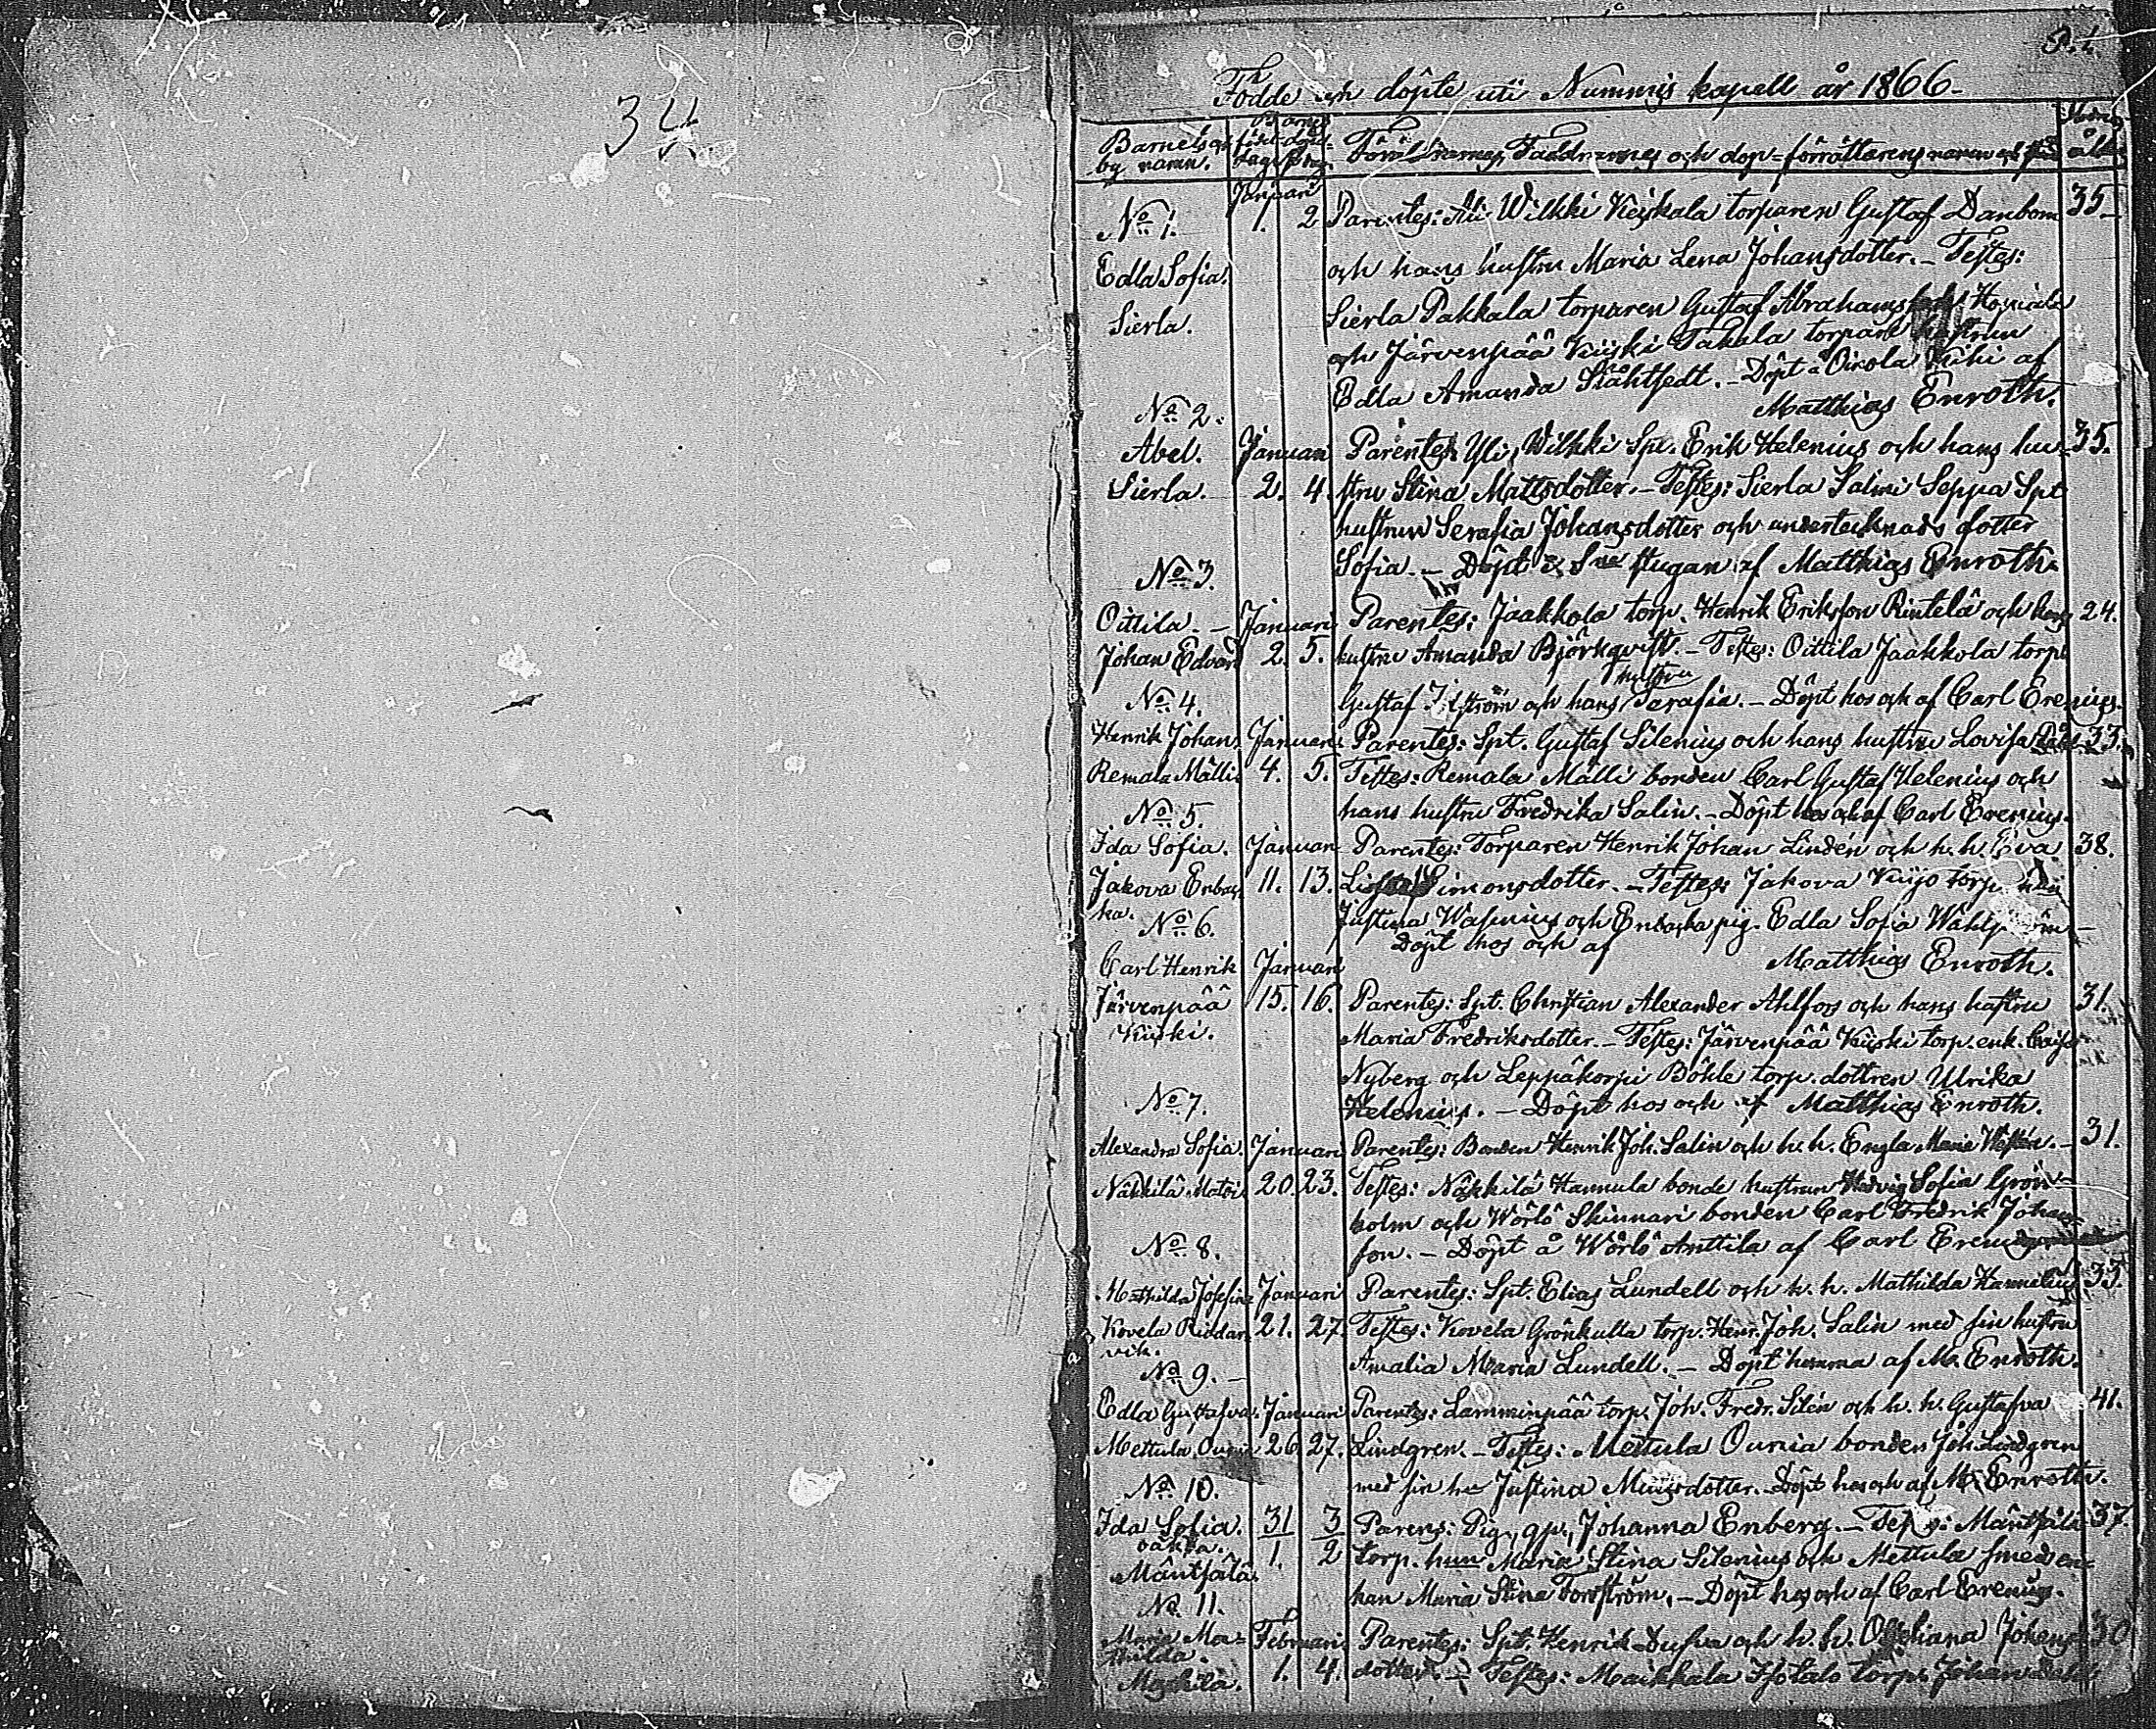 34.
P. 1.
Födde och döpte uti Nummis kapell år 1866.
Barnets och by namn.
Barnets född- döpt- dag
Föräldrarnes, Faddrarnes och dop-förrättarens namn
ål
No 1.
Januari
1. 2
Parentes: Ali Wilkki Keiskala torparen Gustaf Danbom 35
Edla Sofia.
och hans hustru Maria Lena Johansdotter. – Testes:
Sierla.
Sierla Pakkala torparen Gustaf Abrahams
och Järvenpää Kiiski Takala torpare hustrun
Edla Amanda Ståhlstedt. – Döpt å af
Matthias Enroth.
No 2.
Abel. Januari Parentes: Yli Wilkki Spt. Erik Helenius och hans hu- 35.
Sierla. 2. 4. stru Stina Mattsdotter. – Testes: Sierla Salmi Seppä Spt
hustrun Serafia Johansdotter och undertecknads dotter
Sofia. – Döpt i stugan af Matthias Enroth.
No 3.
Oittila. – Januari Parentes: Jaakkola torp. Henrik Eriksson Rintelä och hans 24.
Johan Edvard 2. 5. hustru Amanda Björkqvist. – Testes: Oittila Jaakkola torp.
hustru
Gustaf och hans Serafia. – Döpt hos och af Carl Erenius.
No 4.
Henrik Johan. Januari Parentes: Spt. Gustaf Silenius och hans hustru Lovisa 33.
Remala Mälli 4. 5. Testes: Remala Mälli bonden Carl Gustaf Helenius och
hans hustru Fredrika Salin. – Döpt hos och af Carl Erenius.
No 5.
Ida Sofia. Januari Parentes: Torparen Henrik Johan Lindén och h. h. Eva 38.
Jakova Enbas- 11. 13. Simonsdotter. – Testes: Jakova Kuijo torp.
ka.
Justina Wasenius och Enbaska pig. Edla Sofia
Döpt hos och af
Matthias Enroth.
No 6.
Carl Henrik Januari
Järvenpää 15. 16. Parentes: Spt. Christian Alexander Ahlfors och hans hustru 31.
Kiiski.
Maria Fredriksdotter. – Testes: Järvenpää Kiiski torp. enk. Caisa
Nyberg och Leppäkorpi Böhle torp. dottren Ulrika
Helenius. – Döpt hos och af Matthias Enroth.
No 7.
Alexandra Sofia. Januari Parentes: Bonden Henrik Joh. Salin och h. h. Engla Maria 31.
Näkkilä Matoi 20. 23. Testes: Näkkilä Hannula bonde hustrun Hedvig Sofia Grön-
holm och Wörlö Skinnari bonden Carl Fredrik Johans-
son. – Döpt å Wörlö Anttila af Carl Erenius
No 8.
Mathilda Josefina Januari Parentes: Spt. Elias Lundell och h. h. Mathilda Hannelius 33.
Kovela Riddar- 21. 27. Testes: Kovela Grönkulla torp. Henr. Joh. Salin med sin hustru
vik.
Amalia Maria Lundell. – Döpt hemma af M. Enroth.
No 9. –
Edla Gustafva. Januari Parentes: Lamminpää torp. Joh. Fredr. Silén och h. h. Gustafva 41.
Mettula Ounia 26. 27. Lindgren. – Testes: Mettula Ounia bonden Joh. Lindgren
med sin hu Justina Döpt hos och af M. Enroth.
No 10.
Ida Sofia. 31 3 Parens: Pig. gp. Johanna Enberg. – Testes: Mäntsälä 37.
1. 2 torp. hun Maria Stina Silenius och Mettula smed en-
Mäntsälä.
kan Maria Stina Forsström. – Döpt hos och af Carl Erenius.
No. 11.
Maria Ma- Februari Parentes: Spt. Henrik Dufva och h. h. Johans 30
thilda.
Maskila. 1. 4. dotter. – Testes: Maikkala Isotalo torp. Johan